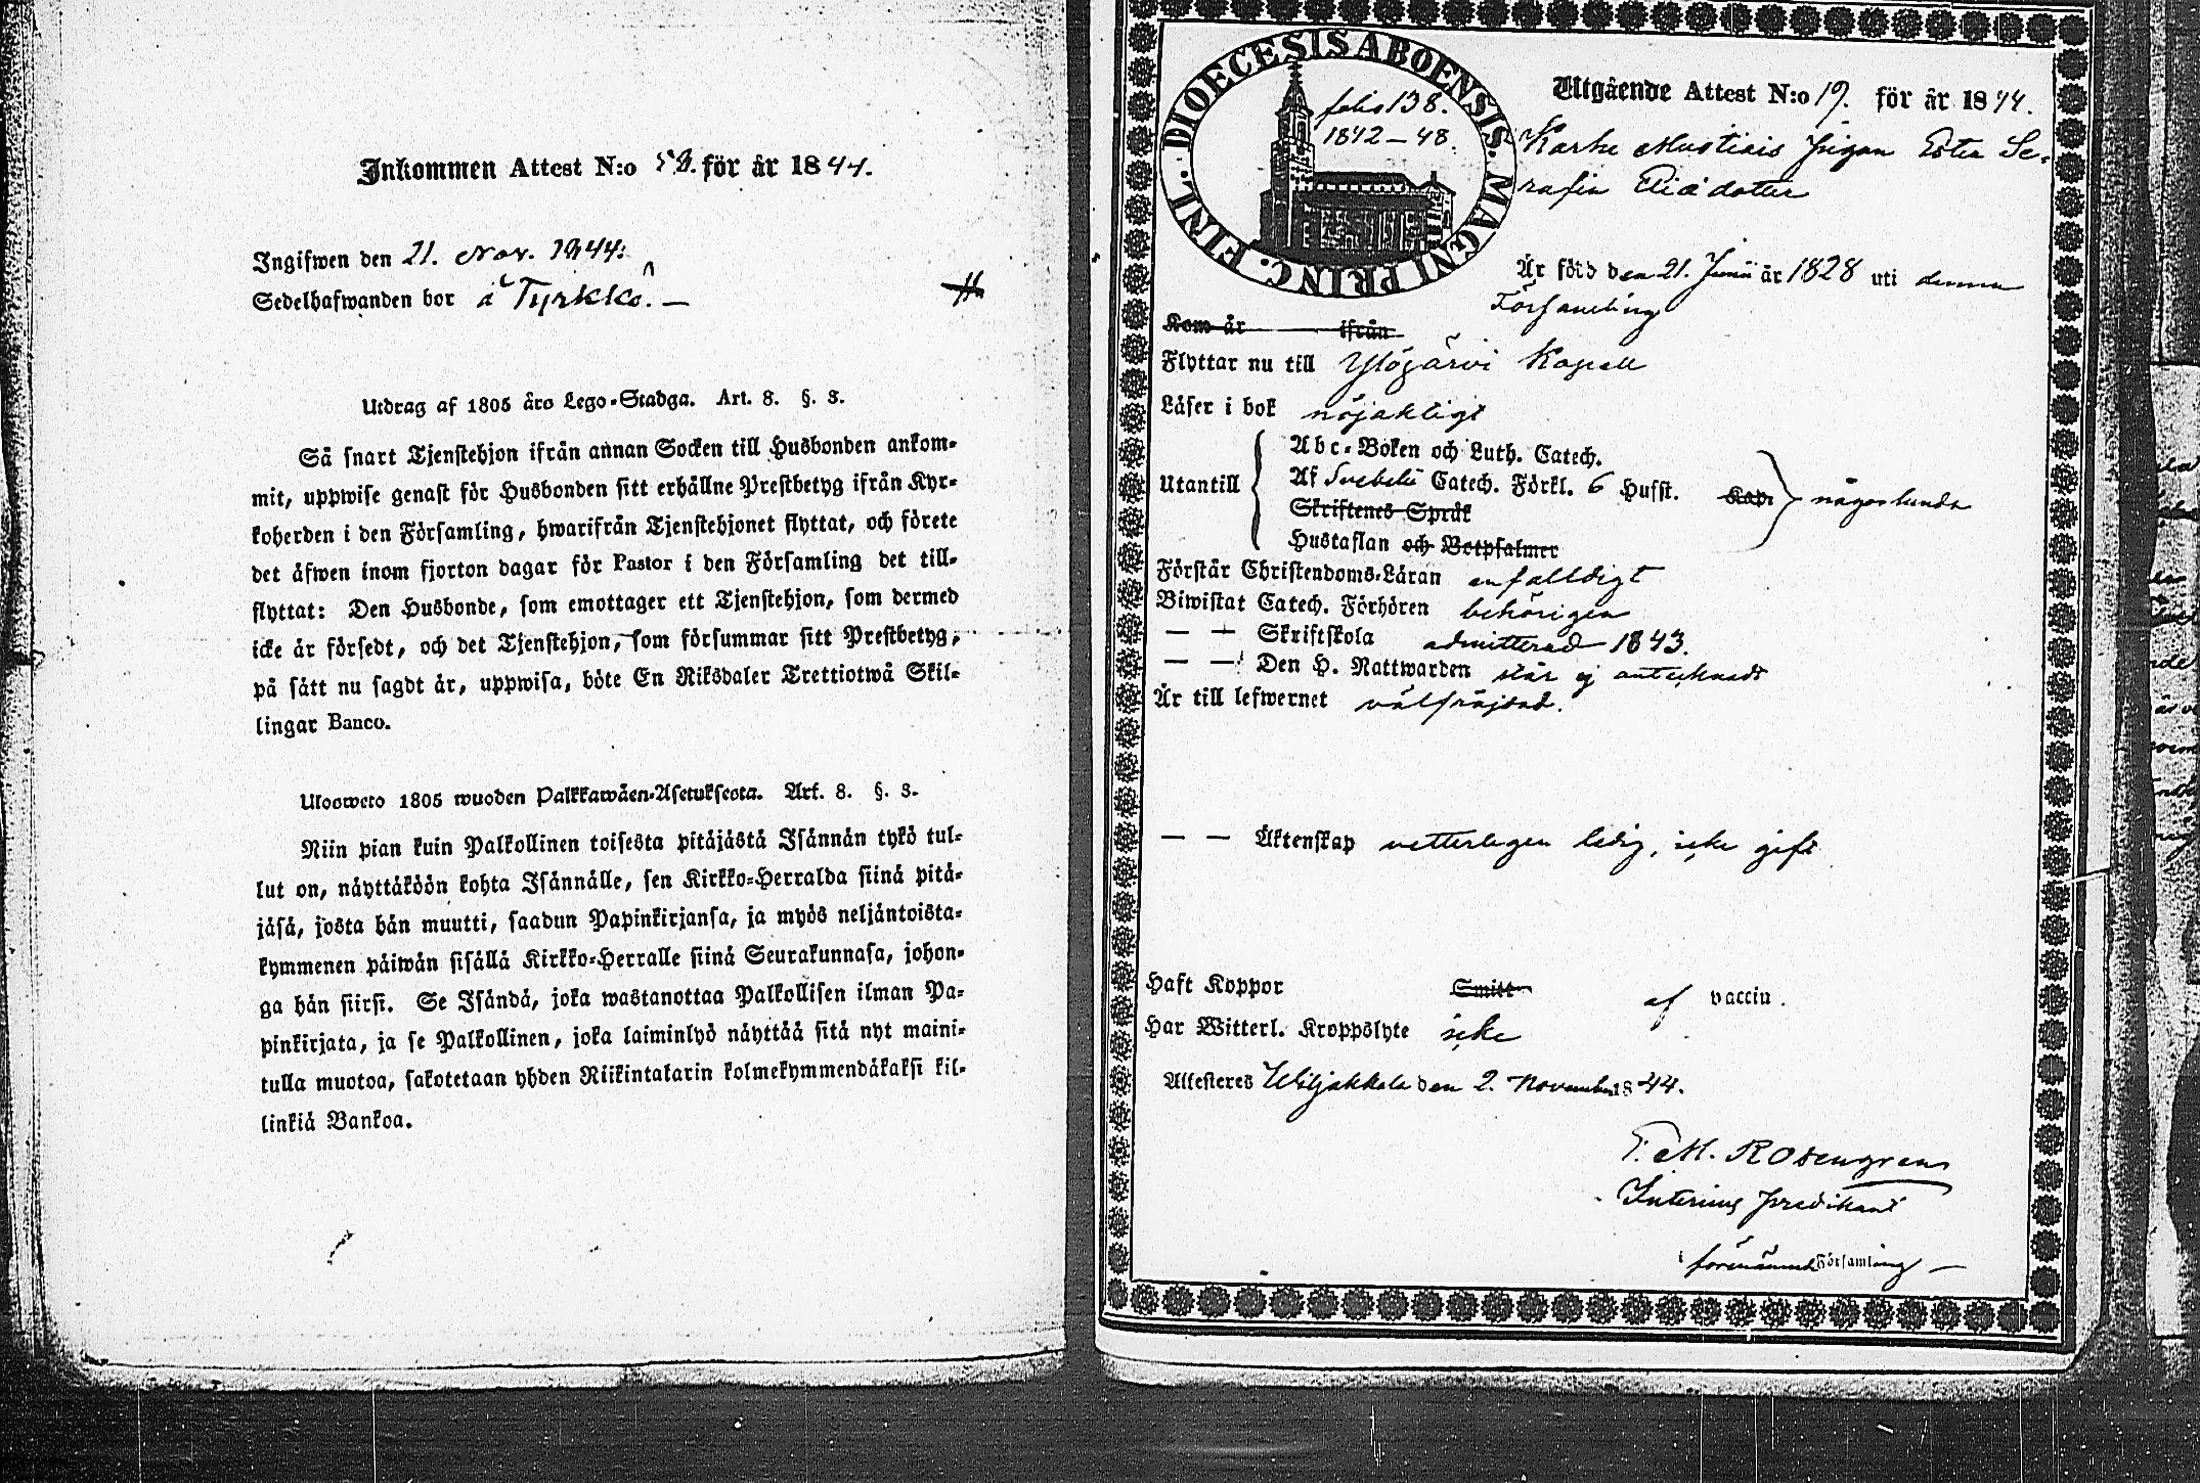 Inkommen Attest N:o 53. för år 1844.
Ingifwen den 21. Nov. 1844.
Sedelhafwanden bor å Tyrkkö. —
Utdrag af 1805 års Lego-Stadga. Art. 8. §. 3.
Så snart Tjenstehjon ifrån annan Socken till Husbonden ankom-
mit, uppwise genast för Husbonden sitt erhållne Prestbetyg ifrån Kyr-
koherden i den Församling, hwarifrån Tjenstehjonet flyttat, och förete
det äfwen inom fjorton dagar för Pastor i den Församling det till-
flyttat: Den Husbonde, som emottager ett Tjenstehjon, som dermed
icke är försedt, och det Tjenstehjon, som försummar sitt Prestbetyg,
på sätt nu sagdt är, uppwisa, böte En Riksdaler Trettiotwå Skil-
lingar Banco.
Ulosweto 1805 wuoden Palkkawäen-Asetuksesta. Art. 8. §. 3.
Niin pian kuin Palkollinen toisesta pitäjästä Isännän tykö tul-
lut on, näyttäköön kohta Isännälle, sen Kirkko-Herralda siinä pitä-
jäsä, josta hän muutti, saadun Papinkirjansa, ja myös neljäntoista-
kymmenen päiwän sisällä Kirkko-Herralle siinä Seurakunnasa, johon-
ga hän siirsi. Se Isändä, joka wastanottaa Palkollisen ilman Pa-
pinkirjata, ja se Palkollinen, joka laiminlyö näyttää sitä nyt maini-
tulla muotoa, sakotetaan yhden Riikintalarin kolmekymmendäkaksi kil-
linkiä Bankoa.
DIOECESIS ABOENSIS. MAGNI PRINC. FINL.
folio 138.
1842-48.
Utgående Attest N:o 19. för år 1844.
Karhe Mustiais pigan Ester Se-
rafia Eliædotter
Är född den 21. Junii år 1828 uti denna
Församling
Kom år ifrån
Flyttar nu till Ylöjärvi Kapell
Läser i bok nöjaktligt
Utantill
Abc-Boken och Luth. Catech.
Af Svebelii Catech. Förkl. 6 Husst. Kap. någorlunda
Skriftenes Språk
Hustaflan och Botpsalmer
Förstår Christendoms-Läran enfalldigt
Biwistat Catech. Förhören behörigen
— — Skriftskola admitterad 1843.
— — Den H. Nattwarden står ej antecknadt
Är till lefwernet välfräjdad.
— — Äktenskap vetterligen ledig, icke gift
Haft Koppor Smitt- af vaccin.
Har Witterl. Kroppslyte icke
Attesteres Wiljakkala den 2. November 1844.
F. M. Rosengren
Interims predikant
i förenämnd Församling —